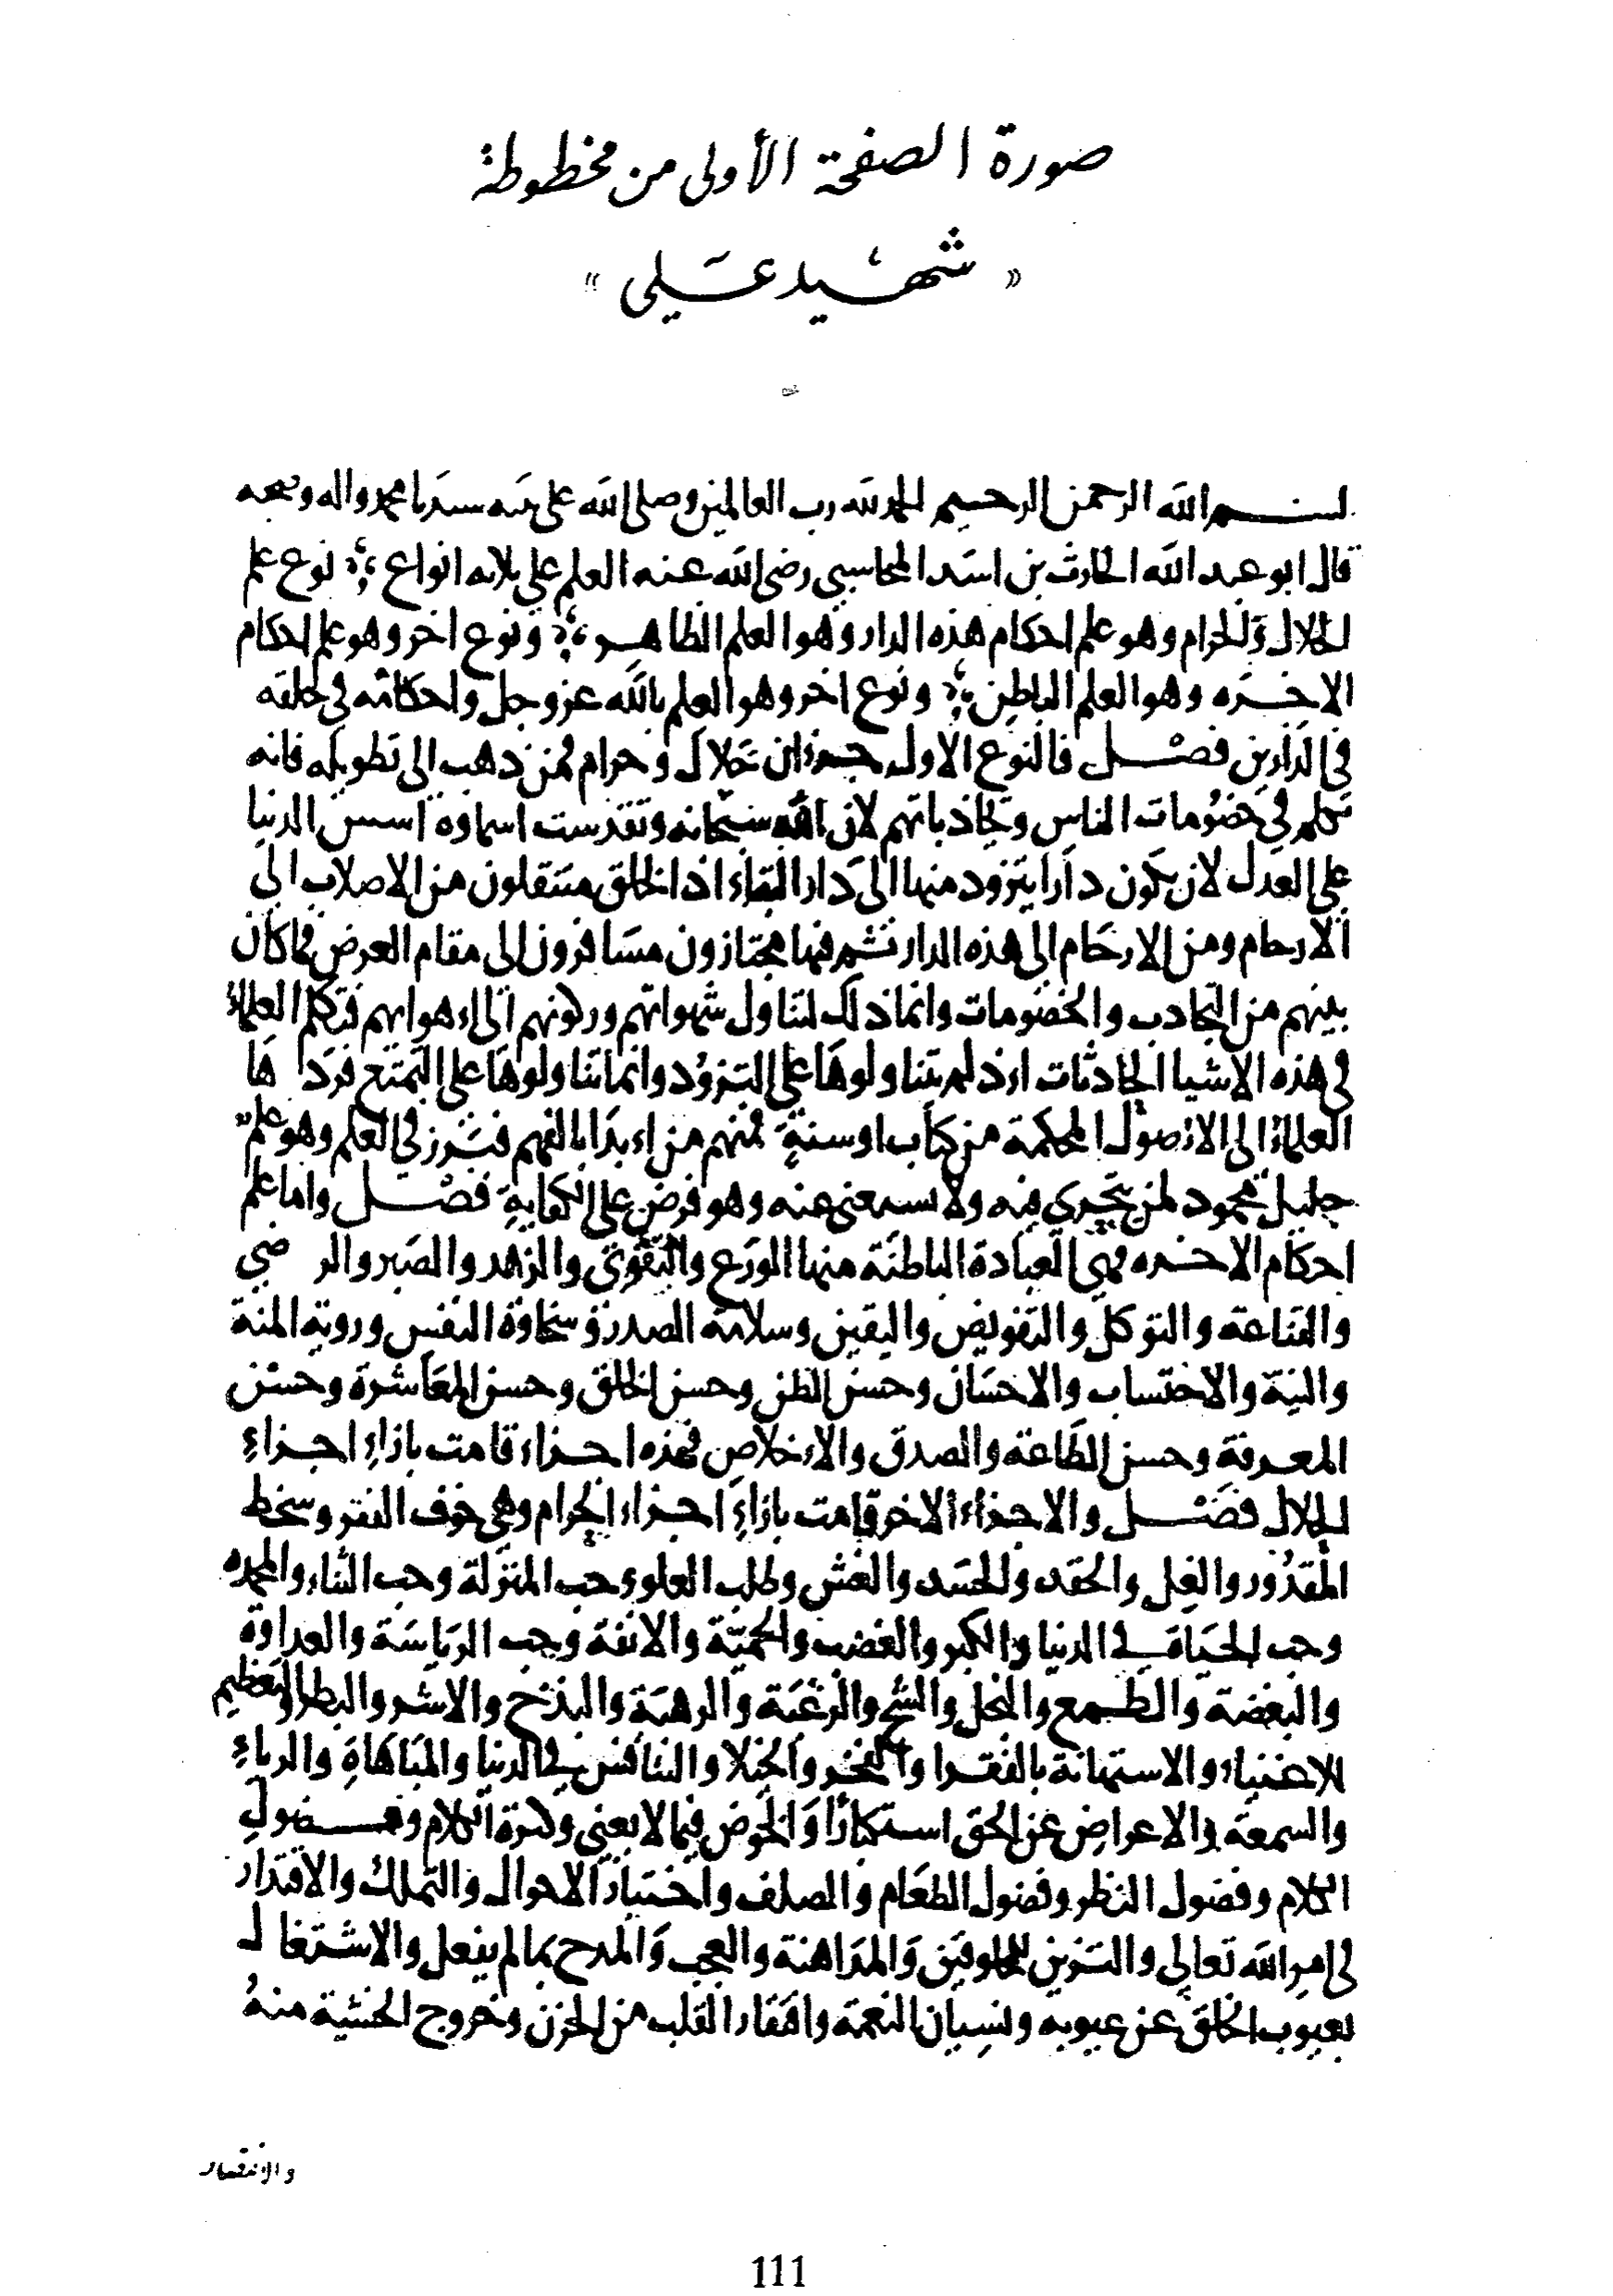 صورة الصفحة الأولى من مخطوطة
« شهيد علي »
بسم الله الرحمن الرحيم الحمد لله رب العالمين وصلى الله على نبيه سيدنا محمد واله وصحبه
قال ابو عبد الله الحارث بن اسد المحاسبي رضى الله عنه العلم على ثلاثه انواع نوع علم
الحلال والحرام وهو علم احكام هذه الدار وهو العلم الظاهر ونوع اخر وهو علم احكام
الاخره وهو العلم الباطن ونوع اخر وهو العلم بالله عز وجل واحكامه في خلقه
في الدارين فصل فالنوع الاول جزءان حلال وحرام فمن ذهب الى تطويله فانه
تكلم في خصومات الناس وتجاذباتهم لان الله سبحانه وتقدست اسماوه اسس الدنيا
على العدل لان يكون دارا يتزود منها الى دار البقاء اذ الخلق منتقلون من الاصلاب الى
الارحام ومن الارحام الى هذه الدار ثم فيها مجتازون مسافرون الى مقام العرض فما كان
بينهم من التجاذب والخصومات وانما ذلك لتناول شهواتهم وركونهم الى اهوايهم فتكلم العلماء
في هذه الاشيا الحادثات اذ لم يتناولوها على التزود وانما تناولوها على التمتع فردا ها
العلماء الى الاصول المحكمة من كتاب او سنة فمنهم من ايد بالفهم فبرز في العلم وهو علم
جليل محمود لمن تحرى فيه ولا يستغنى عنه وهو فرض على الكفاية فصل واما علم
احكام الاخره فهي العبادة الباطنة منها الورع والتقوى والزهد والصبر والر ضي
والقناعة والتوكل والتفويض واليقين وسلامة الصدر وسخاوة النفس وروية المنة
والنية والاحتساب والاحسان وحسن الظن وحسن الخلق وحسن المعاشرة وحسن
المعرفة وحسن الطاعة والصدق والاخلاص فهذه اجزاء قامت بازاء اجزاء
الحلال فصل والاجزاء الاخر قامت بازاء اجزاء الحرام وهي خوف الفقر وسخط
المقدور والغل والحقد والحسد والغش وطلب العلو وحب المنزلة وحب الثناء والمحمده
وحب الحياة في الدنيا والكبر والغضب والحمية والانفة وحب الرياسة والعداوة
والبغضة والطمع والبخل والشح والرغبة والرهبة والبذخ والاشر والبطر والتعظيم
للاغنياء والاستهانة بالفقرا والفخر والخيلا والتنافس في الدنيا والمباهاة والرياء
والسمعة والاعراض عن الحق استكبارا والخوض فيما لا يعني وكثرة الكلام وفضول
الكلام وفضول النظر وفضول الطعام والصلف واختيار الاحوال والتملك والاقتدار
في امر الله تعالى والتزين للمخلوقين والمداهنة والعجب والمدح بما لم يفعل والاشتغال
بعيوب الخلق عن عيوبه ونسيان النعمة وافتقاد القلب من الحزن وخروج الخشية منه
والانتصار
111